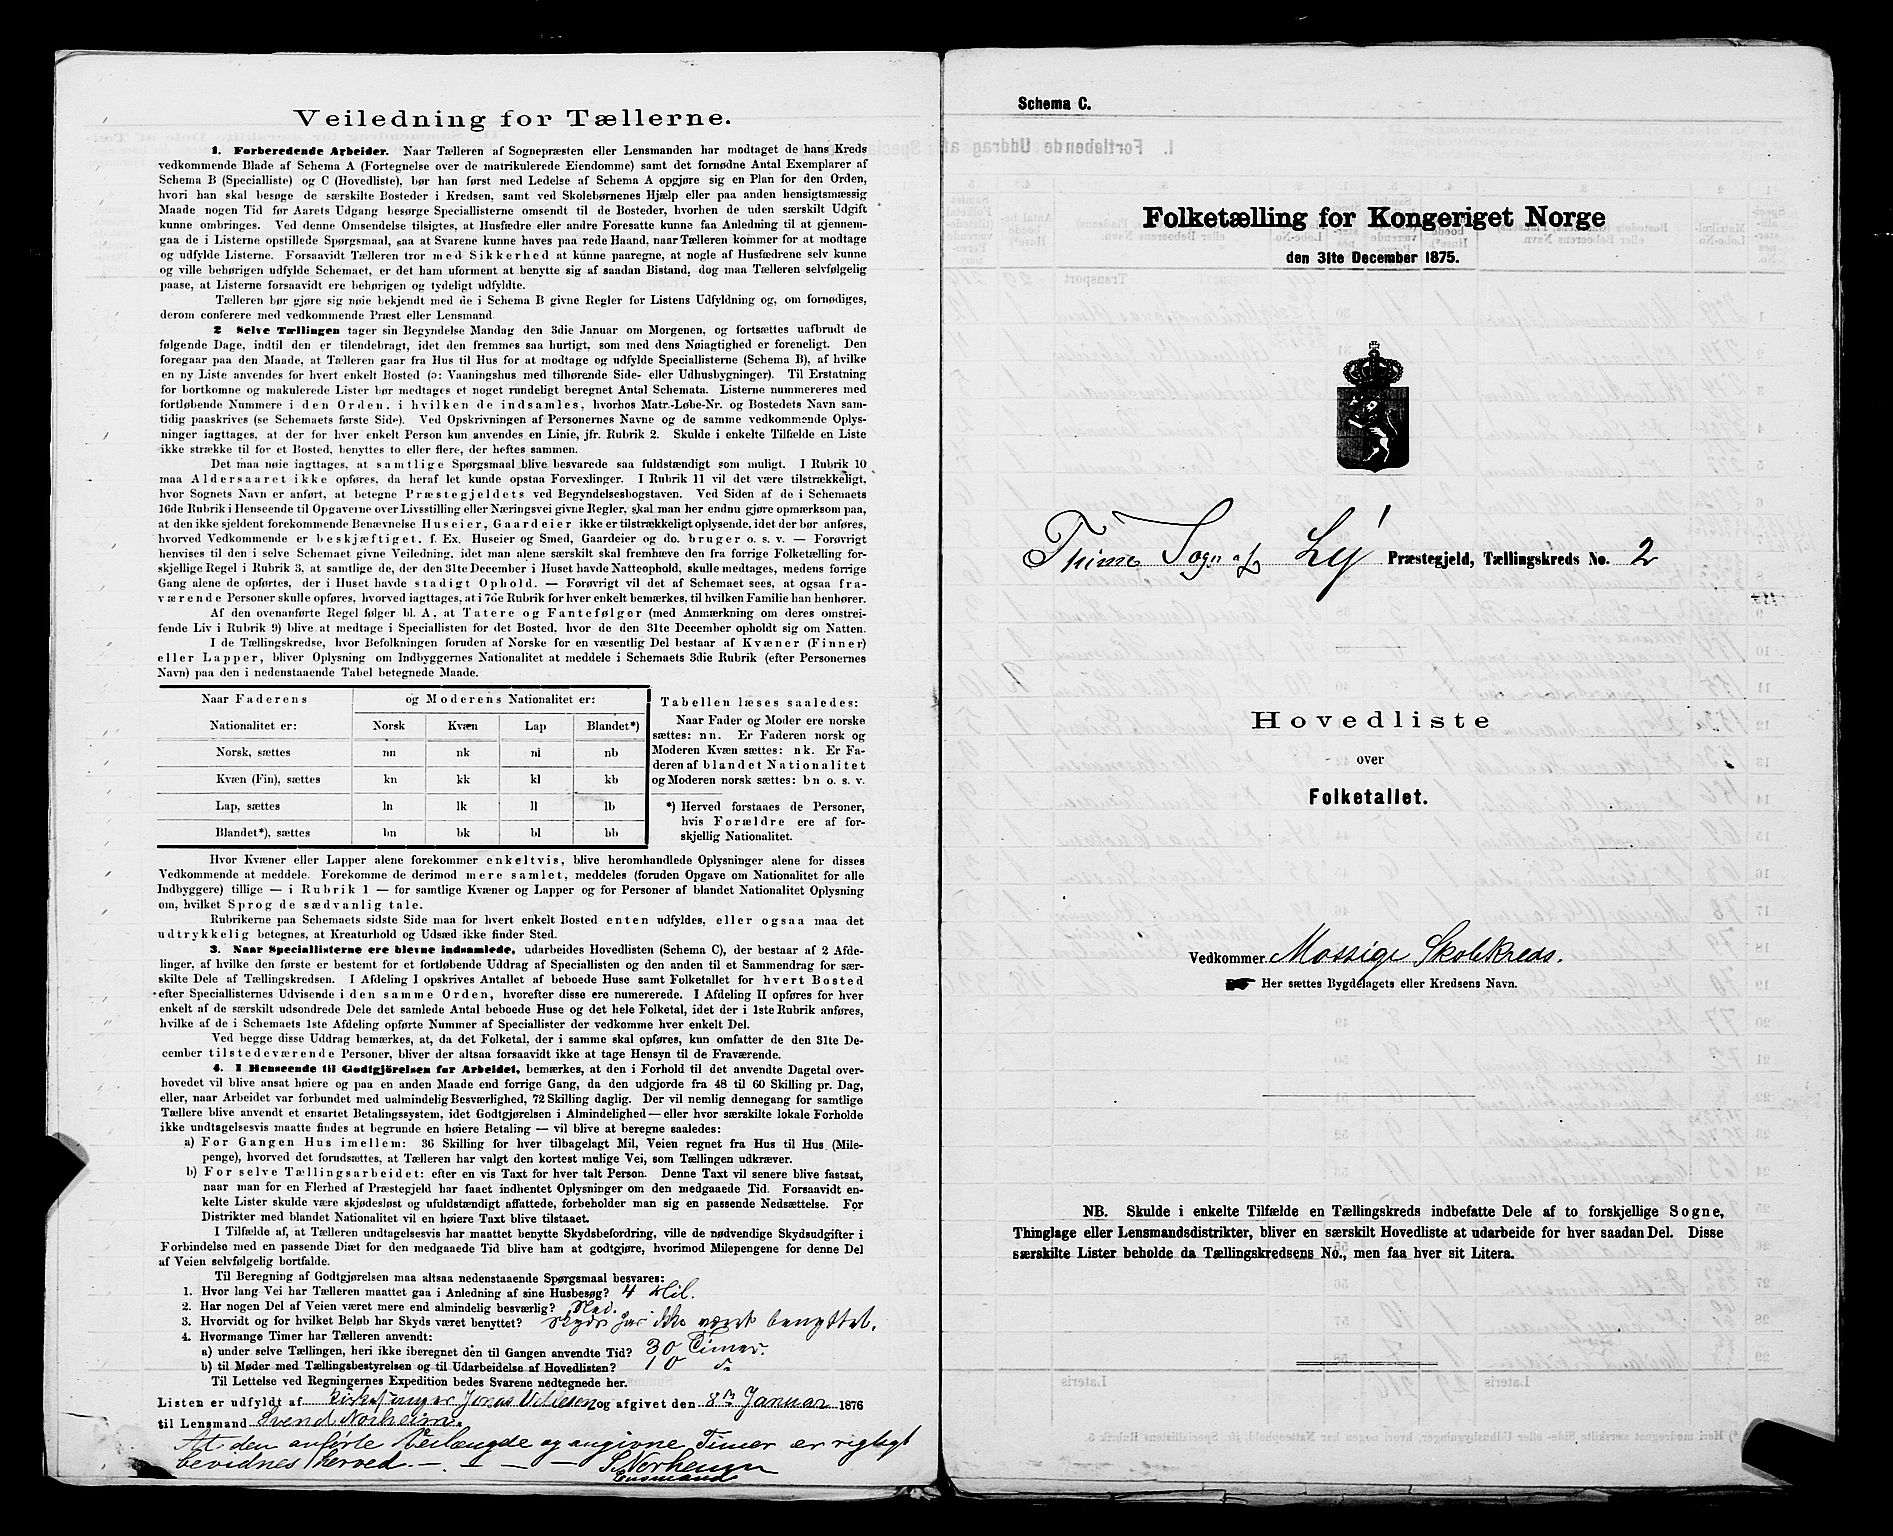 Veiledning for Tællerne.
1. Forberedende Arbeider. Naar Tælleren af Sognepræsten eller Lensmanden har modtaget de hans Kreds
vedkommende Blade af Schema A (Fortegnelse over de matrikulerede Eiendomme) samt det fornødne Antal Exemplarer af
Schema B (Specialliste) og C (Hovedliste), bør han først med Ledelse af Schema A opgjøre sig en Plan for den Orden,
hvori han skal besøge de særskilte Bosteder i Kredsen, samt ved Skolebørnenes Hjælp eller paa anden hensigtsmæssig
Maade nogen Tid før Aarets Udgang besørge Speciallisterne omsendt til de Bosteder, hvorhen de uden særskilt Udgift
kunne ombringes. Ved denne Omsendelse tilsigtes, at Husfædre eller andre Foresatte kunne faa Anledning til at gjennem-
gaa de i Listerne opstillede Spørgsmaal, saa at Svarene kunne haves paa rede Haand, naar Tælleren kommer for at modtage
og udfylde Listerne. Forsaavidt Tælleren tror med Sikkerhed at kunne paaregne, at nogle af Husfædrene selv kunne
og ville behørigen udfylde Schemaet, er det ham uforment at benytte sig af saadan Bistand, dog maa Tælleren selvfølgelig
paase, at Listerne forsaavidt ere behørigen og tydeligt udfyldte.
Tælleren bør gjøre sig nøie bekjendt med de i Schema B givne Regler for Listens Udfyldning og, om fornødiges,
derom conferere med vedkommende Præst eller Lensmand
2 Selve Tællingen tager sin Begyndelse Mandag den 3die Januar om Morgenen, og fortsættes uafbrudt de
følgende Dage, indtil den er tilendebragt, idet den fremmes saa hurtigt, som med dens Nøiagtighed er foreneligt. Den
foregaar paa den Maade, at Tælleren gaar fra Hus til Hus for at modtage og udfylde Speciallisterne (Schema B), af hvilke
en ny Liste anvendes for hvert enkelt Bosted (ɔ: Vaaningshus med tilhørende Side- eller Udhusbygninger). Til Erstatning
for bortkomne og makulerede Lister bør medtages et noget rundeligt beregnet Antal Schemata. Listerne nummereres med
fortløbende Nummere i den Orden, i hvilken de indsamles, hvorhos Matr.-Løbe-Nr. og Bostedets Navn sam-
tidig paaskrives (se Schemaets første Side). Ved Opskrivningen af Personernes Navne og de samme vedkommende Oplys-
ninger iagttages, at der for hver enkelt Person kun anvendes en Linie, jfr. Rubrik 2. Skulde i enkelte Tilfælde en Liste
ikke strække til for et Bosted, benyttes to eller flere, der heftes sammen.
Det maa nøie iagttages, at samtlige Spørgsmaal blive besvarede saa fuldstændigt som muligt. I Rubrik 10
maa Aldersaaret ikke opføres, da heraf let kunde opstaa Forvexlinger. I Rubrik 11 vil det være tilstrækkeligt,
hvor Sognets Navn er anført, at betegne Præstegjeldets ved Begyndelsesbogstaven. Ved Siden af de i Schemaets
16de Rubrik i Henseende til Opgaverne over Livsstilling eller Næringsvei givne Regler, skal man her endnu gjøre opmærksom paa,
at den ikke sjeldent forekommende Benævnelse Huseier, Gaardeier ikke er tilstrækkeligt oplysende, idet der bør anføres,
hvorved Vedkommende er beskjæftiget, f. Ex. Huseier og Smed, Gaardeier og do. bruger o. s. v. — Forøvrigt
henvises til den i selve Schemaet givne Veiledning, idet man alene særskilt skal fremhæve den fra forrige Folketælling for-
skjellige Regel i Rubrik 3, at samtlige de, der den 31te December i Huset havde Natteophold, skulle medtages, medens forrige
Gang alene de opførtes, der i Huset havde stadigt Ophold. — Forøvrigt vil det af Schemaet sees, at ogsaa fra-
værende Personer skulle opføres, hvorved iagttages, at i 7de Rubrik for hver enkelt bemærkes, til hvilken Familie han henhører.
Af den ovenanførte Regel følger bl. A, at Tatere og Fantefølger (med Anmærkning om deres omstrei-
fende Liv i Rubrik 9) blive at medtage i Speciallisten for det Bosted, hvor de den 31te December opholdt sig om Natten.
I de Tællingskredse, hvor Befolkningen foruden af Norske for en væsentlig Del bestaar af Kvæner (Finner)
eller Lapper, bliver Oplysning om Indbyggernes Nationalitet at meddele i Schemaets 3die Rubrik (efter Personernes
Navn) paa den i nedenstaaende Tabel betegnede Maade.
Naar Faderens og Moderens Nationalitet er:
Nationalitet er: Norsk Kvæn Lap Blandet*)
Norsk, sættes nn nk nl nb
Kvæn (Fin), sættes kn kk kl kb
Lap, sættes ln lk ll lb
Blandet*), sættes bn bk bl bb
Tabellen læses saaledes:
Naar Fader og Moder ere norske
sættes: nn. Er Faderen norsk og
Moderen Kvæn sættes: nk. Er Fa-
deren af blandet Nationalitet
og Moderen norsk sættes: bn o. s. v.
*) Herved forstaaes de Personer,
hvis Forældre ere af for-
skjellig Nationalitet.
Hvor Kvæner eller Lapper alene forekommer enkeltvis, blive heromhandlede Oplysninger alene for disses
Vedkommende at meddele. Forekomme de derimod mere samlet, meddeles (foruden Opgave om Nationalitet for alle
Indbyggere) tillige — i Rubrik 1 — for samtlige Kvæner og Lapper og for Personer af blandet Nationalitet Oplysning
om, hvilket Sprog de sædvanlig tale.
Rubrikerne paa Schemaets sidste Side maa for hvert enkelt Bosted enten udfyldes, eller ogsaa maa det
udtrykkelig betegnes, at Kreaturhold og Udsæd ikke finder Sted.
3. Naar Speciallisterne ere blevne indsamlede, udarbeides Hovedlisten (Schema C), der bestaar af 2 Afde-
linger, af hvilke den første er bestemt for et fortløbende Uddrag af Speciallisten og den anden til et Sammendrag for sær-
skilte Dele af Tællingskredsen. I Afdeling I opskrives Antallet af beboede Huse samt Folketallet for hvert Bosted
efter Speciallisternes Udvisende i den samme Orden, hvorefter disse ere numererede. I Afdeling II opføres for hver
enkelt af de særskilt udsondrede Dele det samlede Antal beboede Huse og det hele Folketal, idet der i 1ste Rubrik anføres,
hvilke af de i Schemaets 1ste Afdeling opførte Nummer af Speciallister der vedkomme hver enkelt Del.
Ved begge disse Uddrag bemærkes, at, da det Folketal, der i samme skal opføres, kun omfatter de den 31te De-
cember tilstedeværende Personer, bliver der altsaa forsaavidt ikke at tage Hensyn til de Fraværende.
4. I Henseende til Godtgjörelsen for Arbeidet, bemærkes, at den i Forhold til det anvendte Dagetal over-
hovedet vil blive ansat høiere og paa en anden Maade end forrige Gang, da den udgjorde fra 48 til 60 Skilling pr. Dag,
eller, naar Arbeidet var forbundet med ualmindelig Besværlighed, 72 Skilling daglig. Der vil nemlig dennegang for samtlige
Tællere blive anvendt et ensartet Betalingssystem, idet Godtgjørelsen i Almindelighed — eller hvor særskilte lokale Forholde
ikke undtagelsesvis maatte findes at begrunde en høiere Betaling — vil blive at beregne saaledes:
a) For Gangen Hus imellem: 36 Skilling for hver tilbagelagt Mil, Veien regnet fra Hus til Hus (Mile-
penge), hvorved det forudsættes, at Tælleren har valgt den kortest mulige Vei, som Tællingen udkræver.
b) For selve Tællingsarbeidet: efter en vis Taxt for hver talt Person. Denne Taxt vil senere blive fastsat,
naar man for en Flerhed af Præstegjeld har faaet indhentet Oplysninger om den medgaaede Tid. Forsaavidt en-
kelte Lister skulde være skjødesløst og ufuldstændigt affattede, forbeholder man sig en passende Nedsættelse. For
Distrikter med blandet Nationalitet vil en høiere Taxt blive tilstaaet.
I Tilfælde af, at Tælleren undtagelsesvis har maattet benytte Skydsbefordring, ville de nødvendige Skydsudgifter i
Forbindelse med en passende Diæt for den medgaaede Tid blive ham at godtgjøre, hvorimod Milepengene for denne Del
af Veien selvfølgelig bortfalde.
Til Beregning af Godtgjørelsen maa altsaa nedenstaaende Spørgsmaal besvares:
1. Hvor lang Vei har Tælleren maattet gaa i Anledning af sine Husbesøg? 4 Mil.
2. Har nogen Del af Veien været mere end almindelig besværlig? Nei.
3. Hvorvidt og for hvilket Beløb har Skyds været benyttet? Skyds har ikke været benyttet.
4. Hvormange Timer har Tælleren anvendt:
a) under selve Tællingen, heri ikke iberegnet den til Gangen anvendte Tid? 30 Timer.
b) til Møder med Tællingsbestyrelsen og til Udarbeidelse af Hovedlisten? 10
Til Lettelse ved Regningernes Expedition bedes Svarene nedtegnede her.
Listen er udfyldt af Kirkesanger Jonas og afgivet den 8de Januar 1876
til Lensmand Svend Norheim.
At den anförte Veilængde og angivne Timer er rigtigt
bevidnes herved.
S Norheim
Lensmand
Schema C.
Folketælling for Kongeriget Norge
den 31te December 1875.
Thime Sogn af Lÿ Præstegjeld, Tællingskreds No. 2
Hovedliste
over
Folketallet.
Vedkommer Mossige Skolekreds.
Her sættes Bygdelagets eller Kredsens Navn.
NB. Skulde i enkelte Tilfælde en Tællingskreds indbefatte Dele af to forskjellige Sogne,
Thinglage eller Lensmandsdistrikter, bliver en særskilt Hovedliste at udarbeide for hver saadan Del. Disse
særskilte Lister beholde da Tællingskredsens No., men faa hver sit Litera.